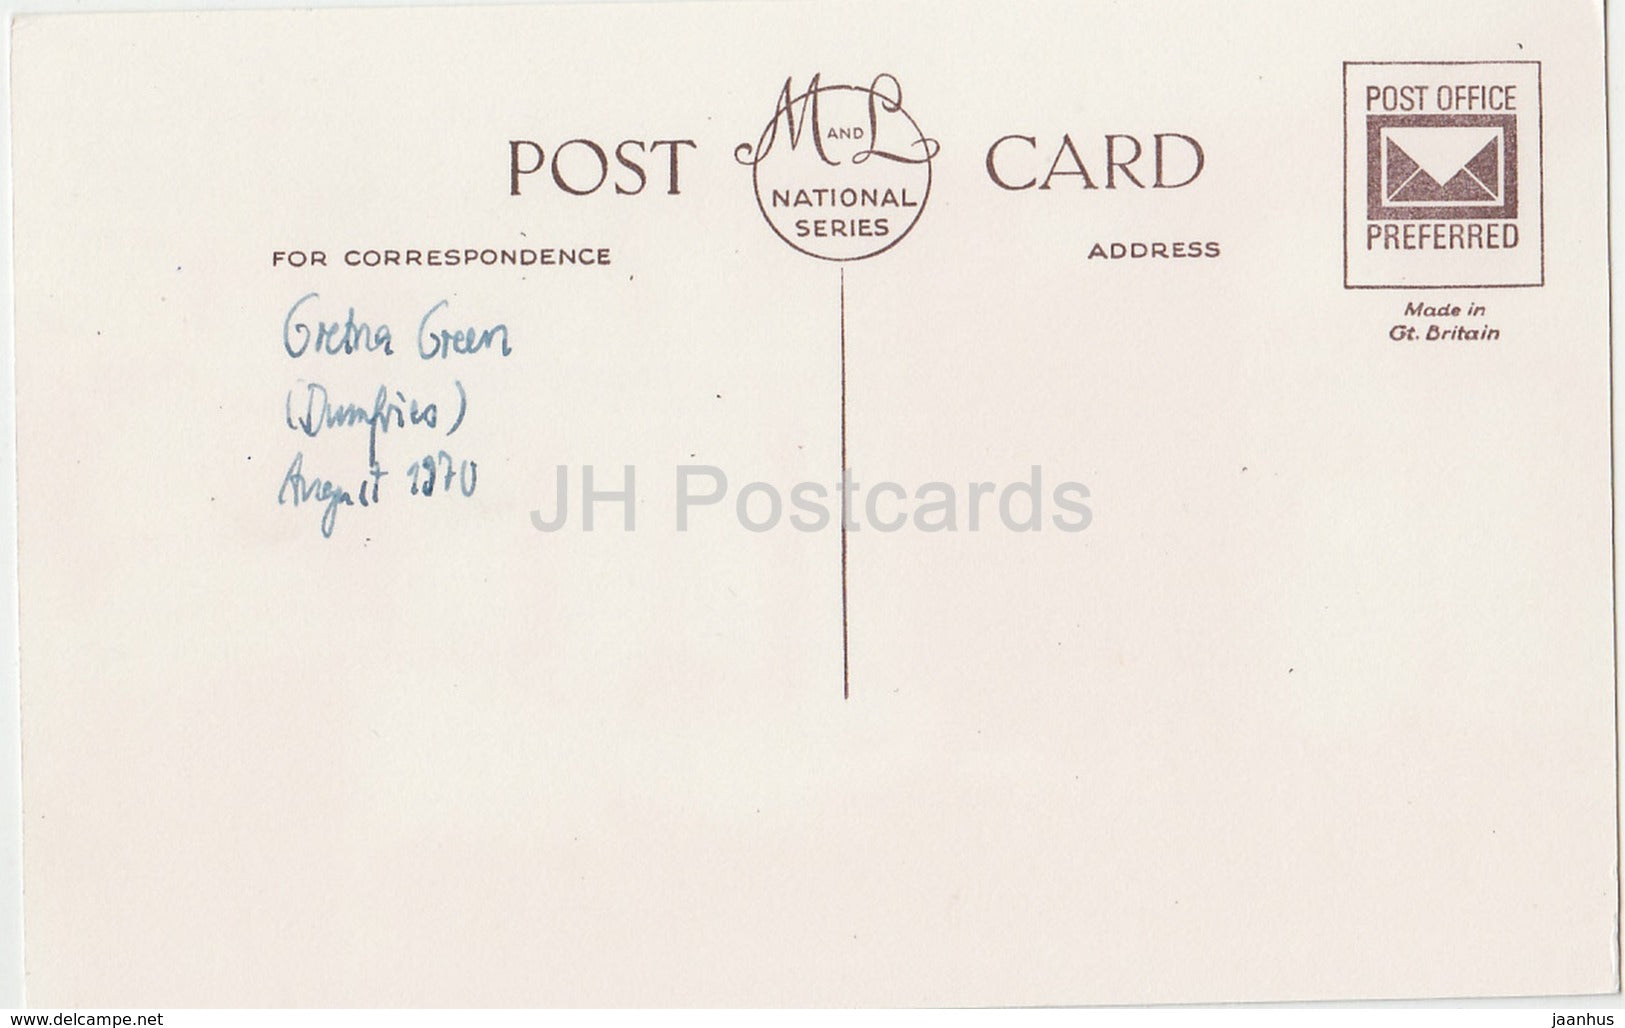 POST CARD
M AND L
NATIONAL
SERIES
POST OFFICE
PREFERRED
FOR CORRESPONDENCE
ADDRESS
Made in
Gt. Britain
Gretna Green
(Dumfries)
August 1970
JH Postcards
www.delcampe.net
jaanhus